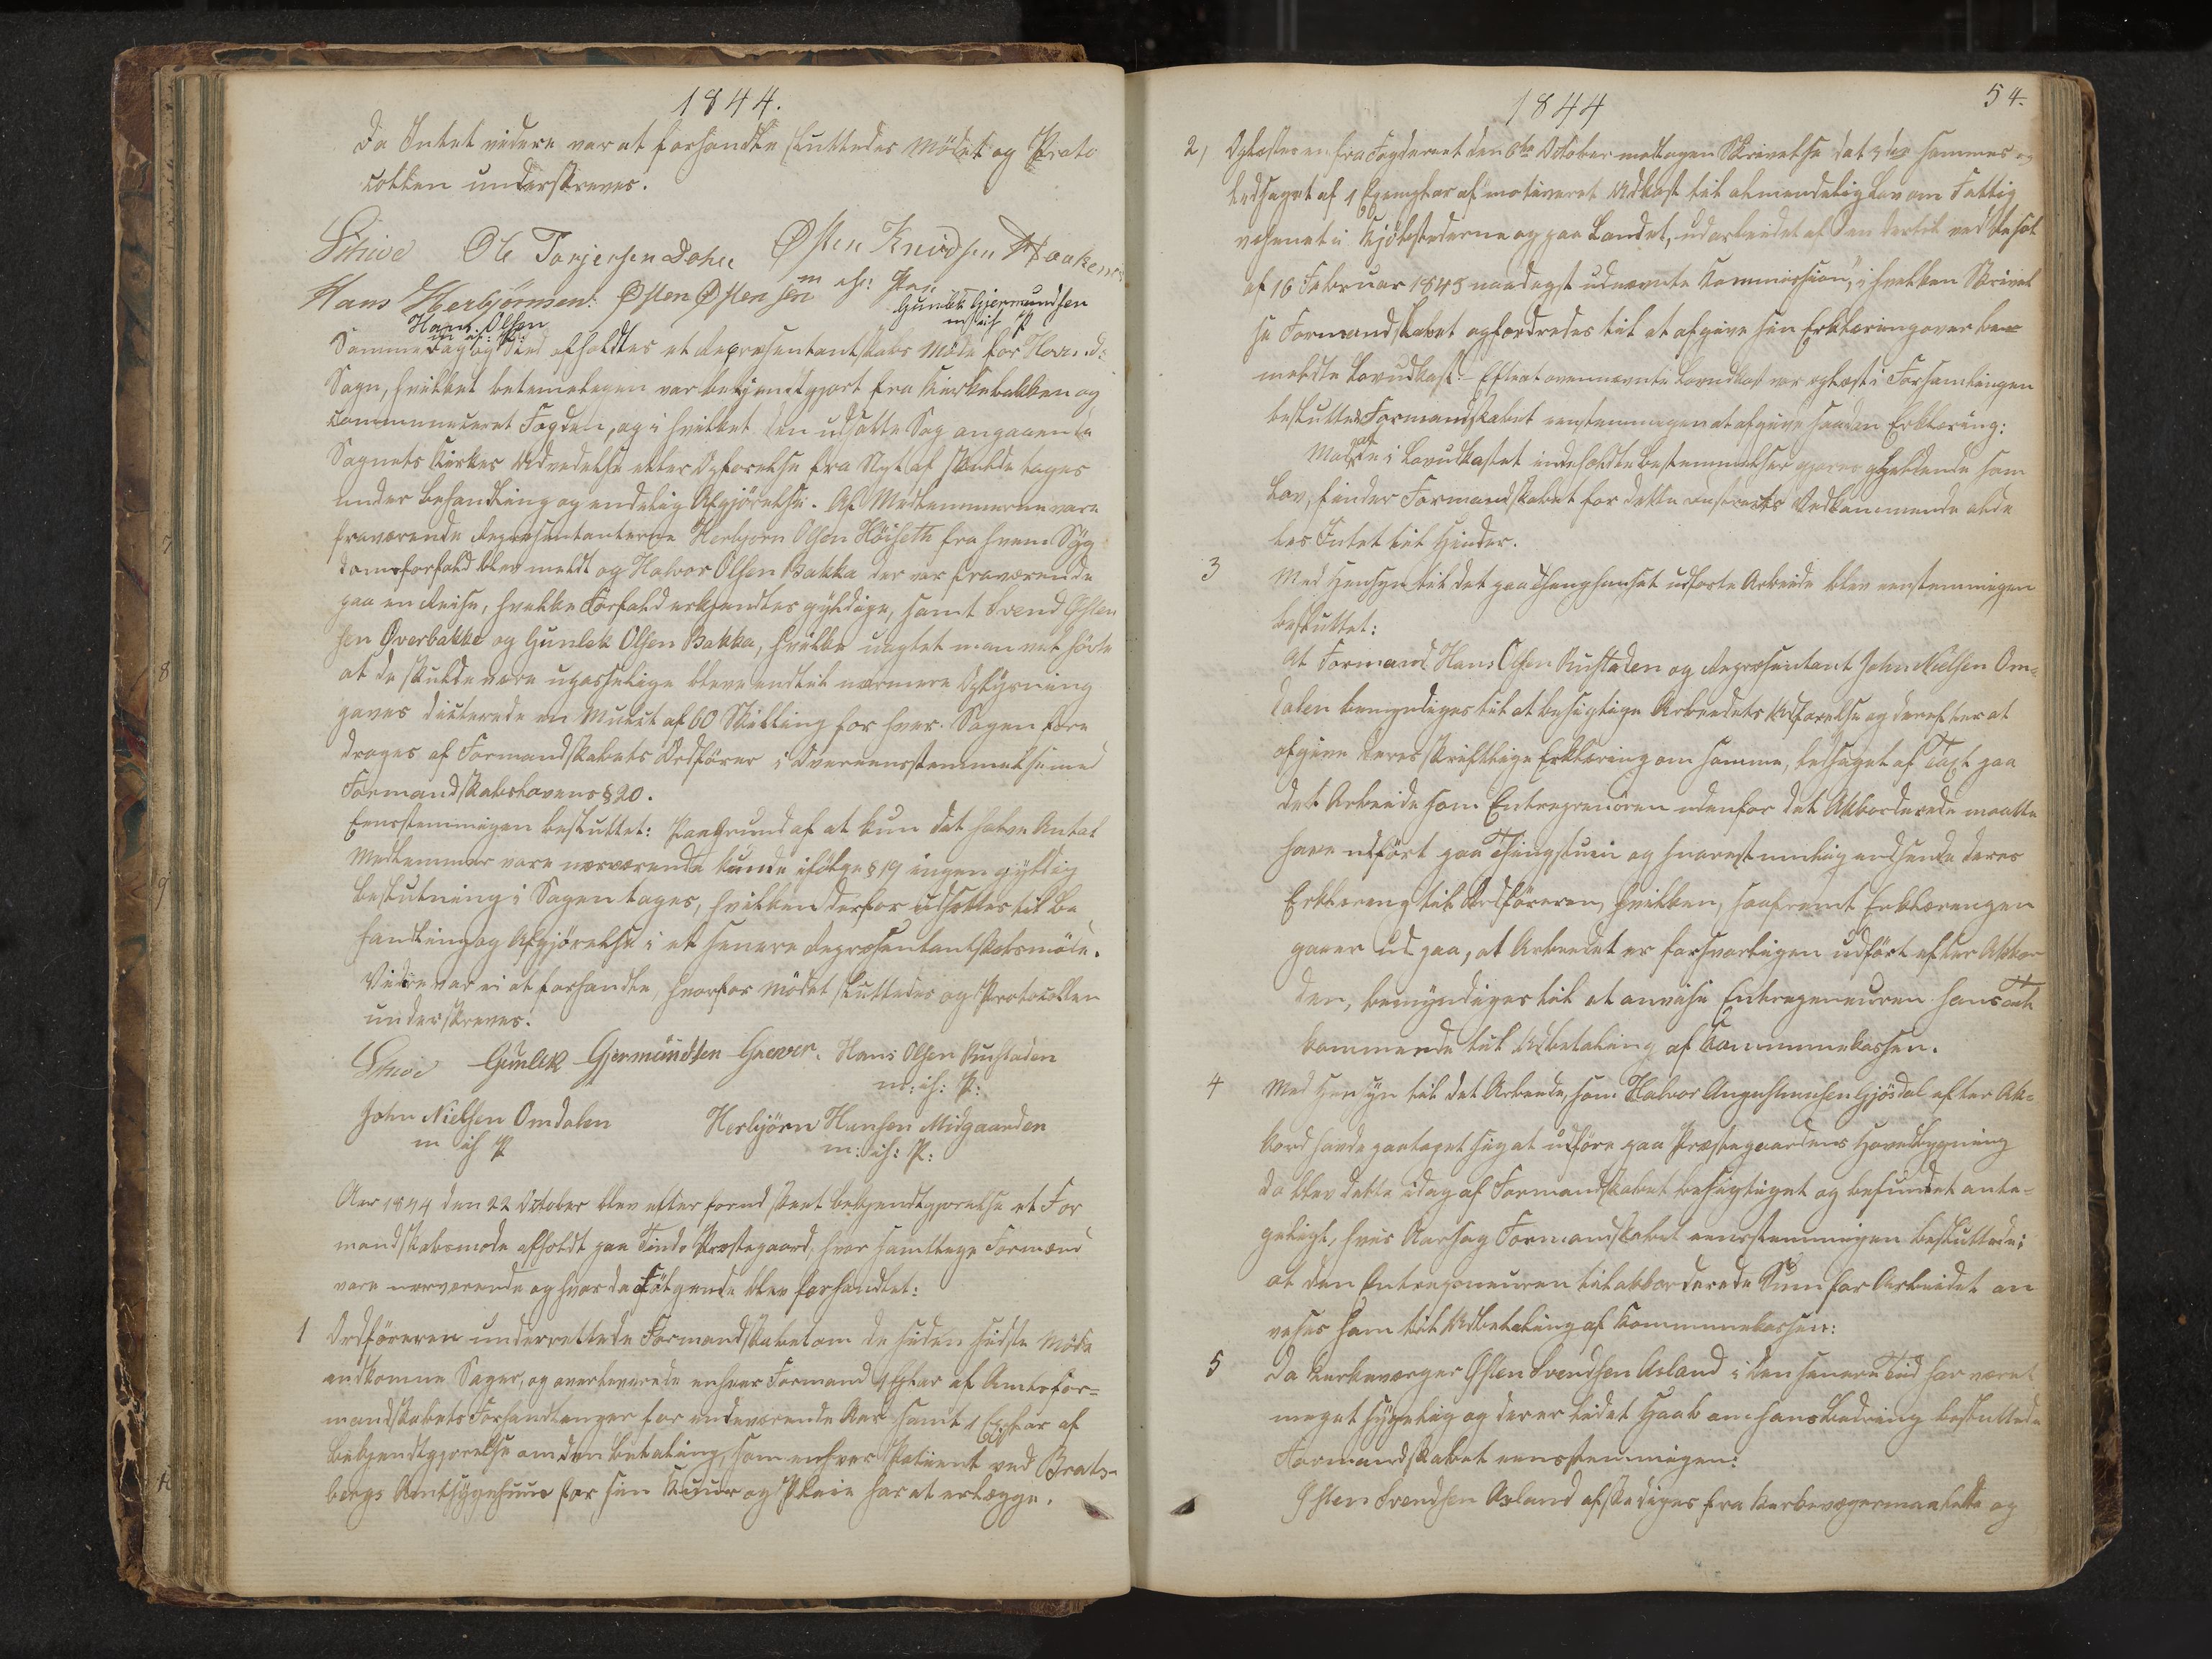 1844.
Da Intet videre var at forhandle sluttedes Mödet og Proto
collen underskreves.
Schive Ole Torjersen Dahle Østen Knudsen Haakenes
Hans Herbjörnsen: Østen Østensen m ih: Pen: Gunlek Gjermundsen
Hans Olsen m ih P
m ih: P:
Samme Dag og Sted afholdtes et Repræsentantskabs Møde for Hov.d:
Sogn, hvilket betimeligen var bekjendtgjort fra Kirkebakken og
communiceret Fogden, og i hvilket den udsatte Sag angaaende
Sognets Kirkes Udvidelse eller Opførelse fra Nyt af skulde tages
under Behandling og endelig Afgjörelse. Af Medlemmerne vare
fraværende Repræsentanterne Herbjorn Olsen Höiseth fra hvem Syg
domsforfald blev meldt og Halvor Olsen Bakka der var fraværende
paa en Reise, hvilke Forfald erkjendtes gyldige, samt Svend Østen
sen Øverbakke og Gunlek Olsen Bakka, hvilke uagtet man vel hörte
at de skulde være upasselige bleve indtil nærmere Oplysning
gaves dicterede en Mulct af 60 Skilling for hver. Sagen fore
droges af Formandskabets Ordförer i Overeensstemmelse med
Formandskabslovens § 20.
Eensstemmigen besluttet: Paa Grund af at kun det halve Antal
Medlemmer vare nærværende kunde ifölge § 19 ingen gyldig
Beslutning i Sagen tages, hvilken derfor udsattes til Be
handling og Afgjörelse i et senere Repræsentantskabsmöde.
Videre var ei at forhandle, hvorfor Mödet sluttedes og Protocollen
underskreves.
Schive Gunlek Gjermundsen Græver. Hans Olsen Rustaden
m: ih: P:
John Nielsen Omdalen Herbjörn Hansen Midgaarden
m ih P m: ih: P:
Aar 1844 den 22 October blev efter forud skeet bekjendtgjørelse et For
mandskabsmøde afholdt paa Tinds Præstegaard, hvor samtlige Formænd
vare nærværende og hvor da Fölgende blev forhandlet:
1 Ordföreren underrettede Formandskabet om de siden sidste Möde
indkomne Sager, og overleverede enhver Formand 1 Explar af Amtsfor=
mandskabets Forhandlinger for indeværende Aar samt 1 Explar af
Bekjendtgjørelse om den Betaling, som enhver Patient ved Brats-
bergs Amtssygehuus for sin Kuur og Pleie har at erlægge.
1844
54.
2, Oplæstes en fra Fogderiet den 6te October modtagen Skrivelse dat 3die sammes og
ledsaget af 1 Exemplar af motiveret Udkast til almindelig Lov om Fattig
væsenet i Kjöbstederne og paa Landet, udarbeidet af den dertil ved Resol
af 16 Februar 1843 naadigst udnævnte Kommission, i hvilken Skrivel
se Formandskabet opfordredes til at afgive sin Erklæring over be=
meldte Lovudkast. Efterat ovennævnte Lovudkast var oplæst i Forsamlingen
besluttede Formandskabet eenstemmigen at afgive saadan Erklæring:
Mod at de i Lovudkastet indeholdte bestemmelser gjøres gjeldende som
Lov, finder Formandskabet for dette Districts Vedkommende alde
les Intet til Hinder.
3 Med Hensyn til det paa Thinghuset udførte Arbeide blev eenstemmigen
besluttet:
At Formand Hans Olsen Rustaden og Repræsentant John Nielsen Om=
dalen bemyndiges til at besigtige Arbeidets Udførelse og derefter at
afgive deres skriftlige Erklæring om samme, ledsaget af Taxt paa
det Arbeide som Entreprenören udenfor det Akkorderede maatte
have udfört paa Thingstuen og snarest mulig indsende deres
Erklæring til Ordföreren, hvilken, saafremt Erklæringen
gaaer ud paa, at Arbeidet er forsvarligen udfört efter Akkor
den, bemyndiges til at anvise Entrepreneuren hans Til
kommende til Udbetaling af Kommunekassen.
4 Med Hensyn til det Arbeide, som Halvor Augustinusen Gjösdal efter Ak=
kord havde paataget sig at udföre paa Præstegaardens Hovedbygning
da blev dette idag af Formandskabet besigtiget og befundet anta=
geligt, hvis Aarsag Formandskabet eensstemmigen besluttede:
at den Entrepreneuren tilakkorderede Sum for Arbeidet an
vises ham til Udbetaling af Kommunekassen:
5 Da Kirkeværger Østen Svendsen Asland i den senere Tid har været
meget sygelig og der er lidet Haab om hans Bedring besluttede
Formandskabet eensstemmigen:
Østen Svendsen Asland afskediges fra Kirkeværgeombudet og